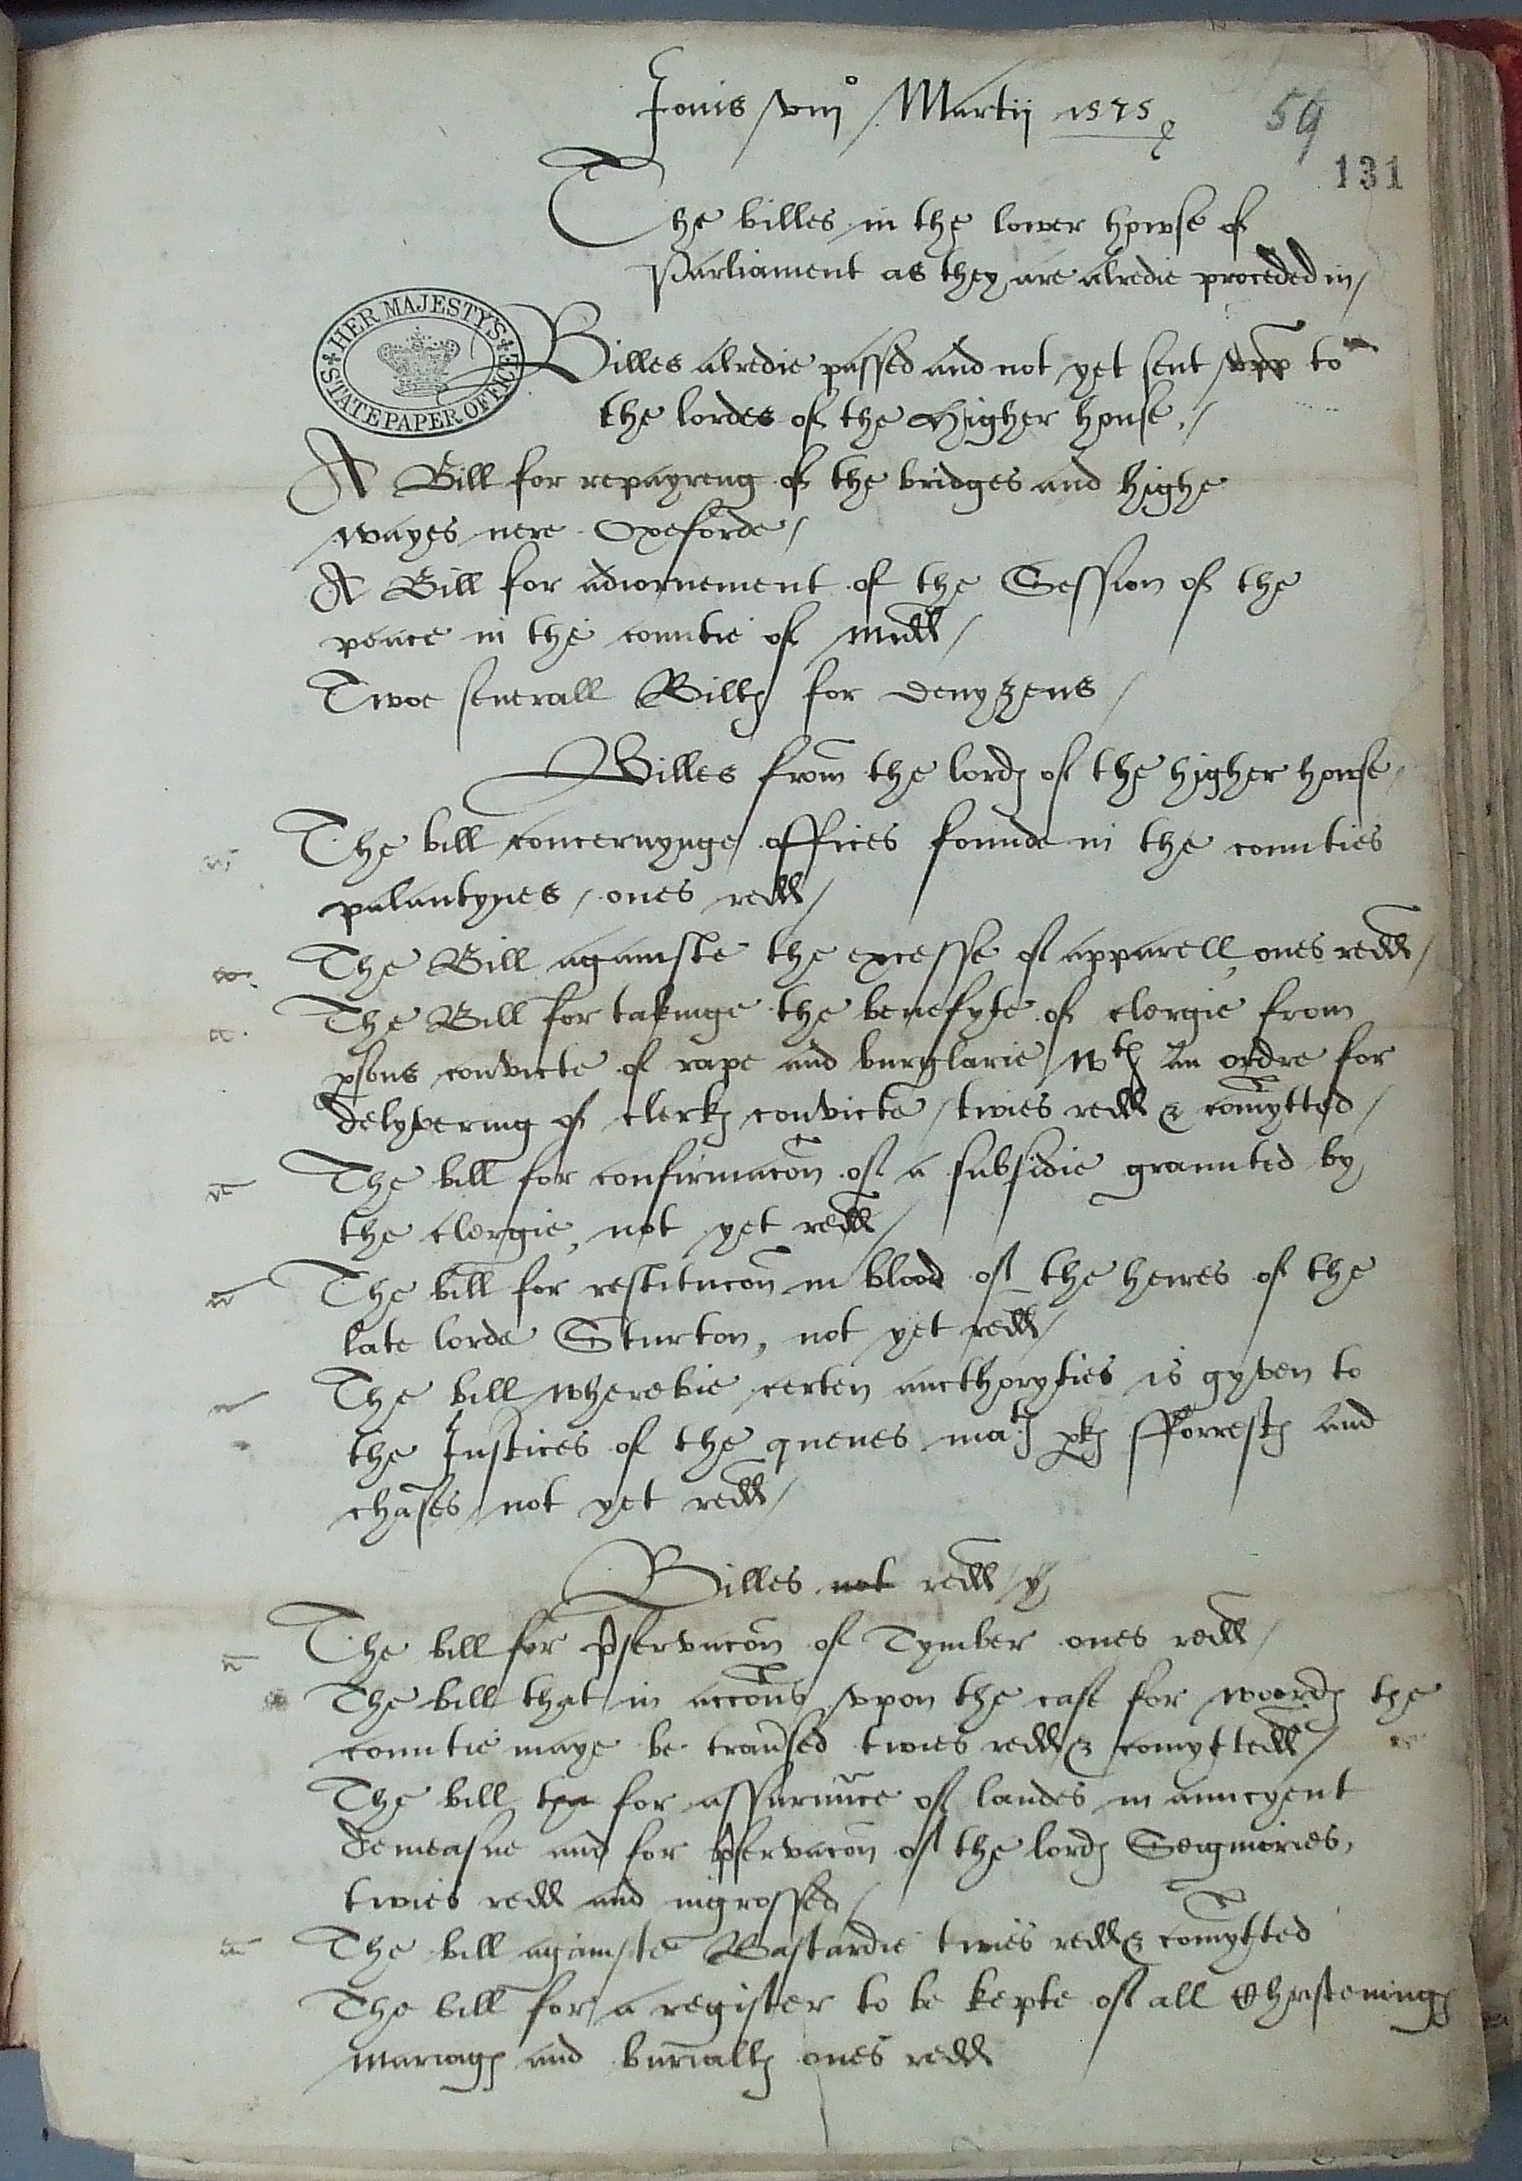 Jouis viijo Martij 1575
59
131
The billes in the lower howse of
Parliament as they are alredie proceded in /
HER MAJESTY'S STATE PAPER OFFICE
Billes alredie passed and not yet sent vpp to
the lordes of the Higher house. /
A Bill for repayreng of the bridges and highe
wayes nere Oxeforde /
A Bill for adiornement of the Session of the
peace in the countie of Midd /
Twoe seuerall Billes for denyzens /
Billes from the lordes of the higher howse /
The bill concernynge offices founde in the counties
palantynes / ones redd /
The Bill againste the excesse of apparell, ones redd /
The Bill for takinge the benefyte of clergie from
psons convicte of rape and burglarie / wth an ordre for
delyvering of clerkes convicte / twies redd & comytted /
The bill for confirmacon of a subsidie graunted by
the clergie, not yet redd /
The bill for restitucon in blood of the heires of the
late lorde Sturton, not yet redd /
The bill wherebie certen aucthoryties is gyven to
the Justices of the quenes mates pkes fforrestes and
chases / not yet redd /
Billes not redd /
The bill for pservacon of Tymber ones redd /
The bill that in accons vpon the case for woordes the
countie maye be traversed twies redd & comyttedd /
The bill for assuraunce of landes in auncyent
demeasne and for pservacon of the lordes Seigniories,
twies redd and ingrossed /
The bill againste Bastardie twies redd & comytted
The bill for a register to be kepte of all Christeninges
mariages and burialles ones redd